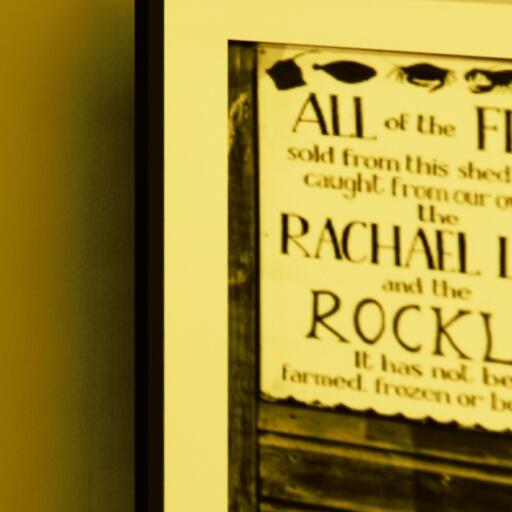 ALL of the
sold from this shed
caught from our
the
RACHAEL
and the
ROCKL
It has not be
farmed, frozen or